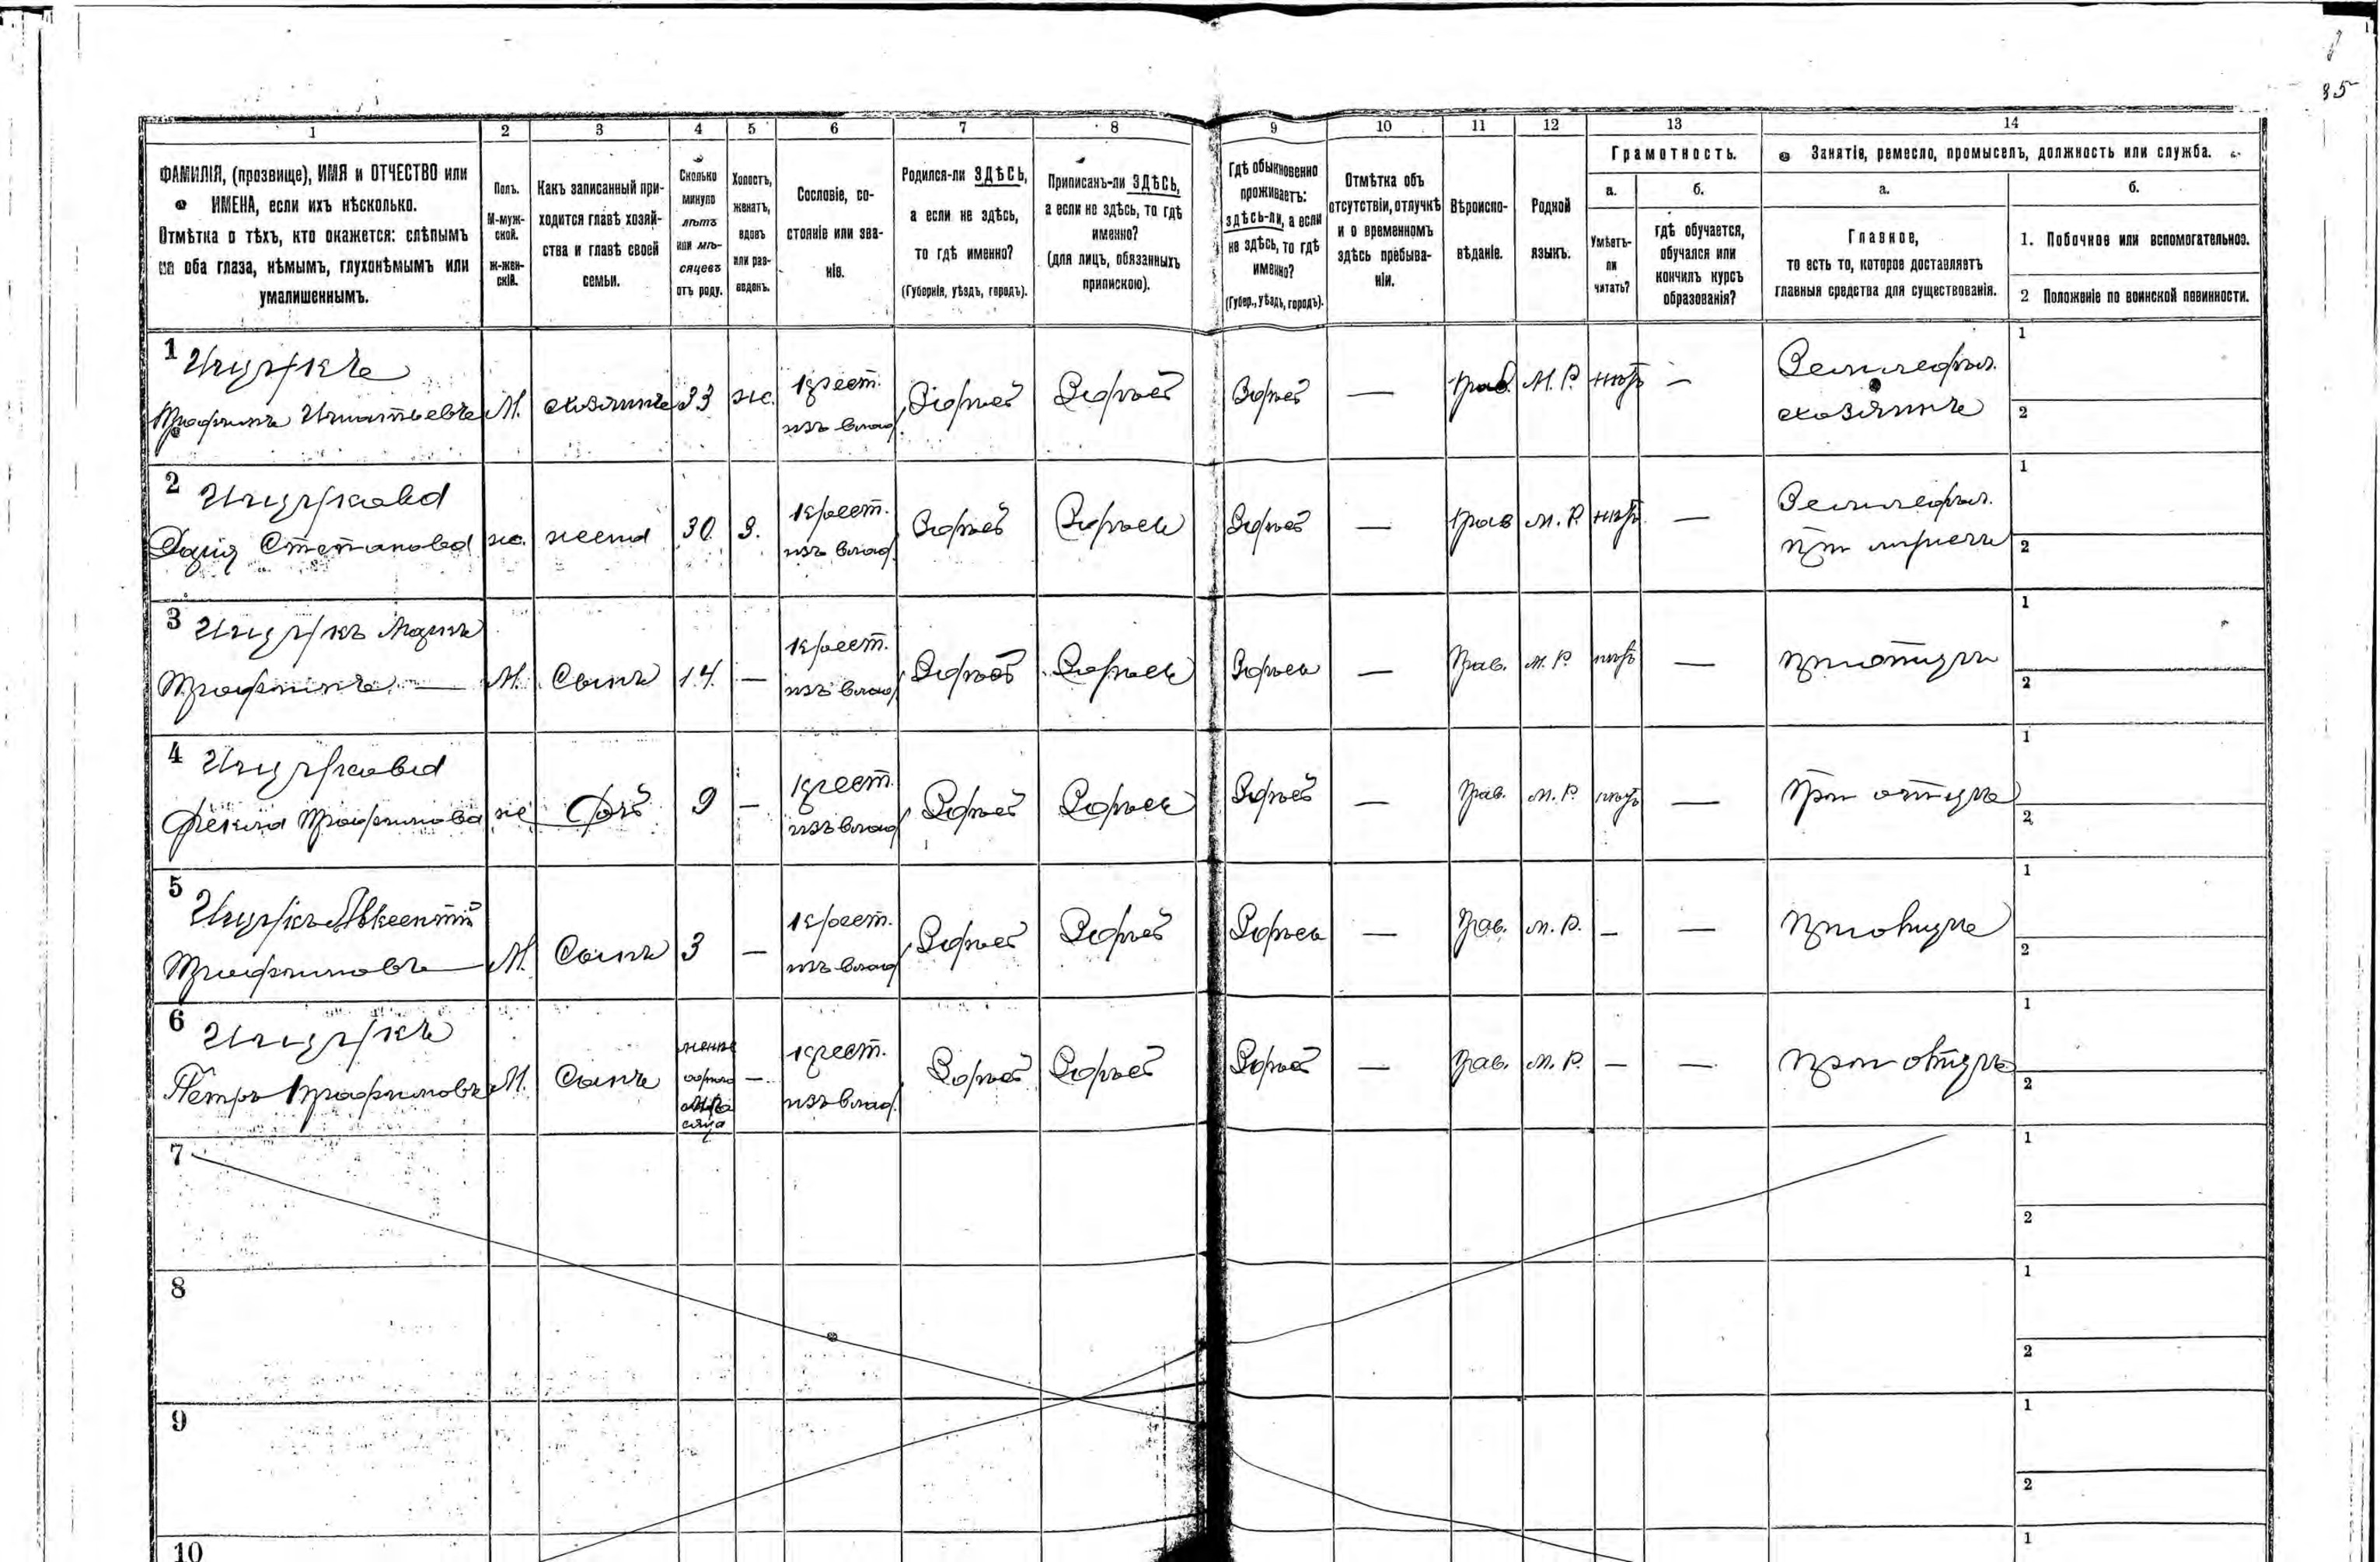 35
1 2 3 4 5 6 7 8 9 10 11 12 13 14
ФАМИЛІЯ, (прозвище), ИМЯ и ОТЧЕСТВО или
ИМЕНА, если ихъ нѣсколько.
Отмѣтка о тѣхъ, кто окажется: слѣпымъ
на оба глаза, нѣмымъ, глухонѣмымъ или
умалишеннымъ.
Полъ.
М-муж-
ской.
Ж-жен-
скій.
Какъ записанный при-
ходится главѣ хозяй-
ства и главѣ своей
семьи.
Сколько
минуло
лѣтъ
или мѣ-
сяцевъ
отъ роду.
Холостъ,
женатъ,
вдовъ
или раз-
веденъ.
Сословіе, со-
стояніе или зва-
ніе.
Родился-ли ЗДѢСЬ,
а если не здѣсь,
то гдѣ именно?
(Губернія, уѣздъ, городъ).
Приписанъ-ли ЗДѢСЬ,
а если не здѣсь, то гдѣ
именно?
(для лицъ, обязанныхъ
припискою).
Гдѣ обыкновенно
проживаетъ:
здѣсь-ли, а если
не здѣсь, то гдѣ
именно?
(Губер., уѣздъ, городъ).
Отмѣтка объ
отсутствіи, отлучкѣ
и о временномъ
здѣсь пребыва-
ніи.
Вѣроиспо-
вѣданіе.
Родной
языкъ.
Грамотность.
а.
Умѣетъ-
ли
читать?
б.
гдѣ обучается,
обучался или
кончилъ курсъ
образованія?
Занятіе, ремесло, промыселъ, должность или служба.
а.
Главное,
то есть то, которое доставляетъ
главныя средства для существованія.
б.
1. Побочное или вспомогательное.
2 Положеніе по воинской повинности.
1
М. хозяинъ 33 ж. крест. Здѣсь Здѣсь Здѣсь — Прав. М. Р. нѣтъ — Земледѣл. 1
Трофимъ Игнатьевъ изъ влад. хозяинъ 2
2
ж. жена 30 З. крест. Здѣсь Здѣсь Здѣсь — Прав М. Р. нѣтъ — Земледѣл. 1
Дарія Степанова изъ влад. при мужѣ 2
3
М. Сынъ 14 — крест. Здѣсь Здѣсь Здѣсь — Прав. М. Р. нѣтъ — при отцѣ 1
Трофимъ — изъ влад. 2
4
ж Дочь 9 — крест. Здѣсь Здѣсь Здѣсь — Прав. М. Р. нѣтъ — при отцѣ 1
Фекла Трофимова изъ влад. 2
5
Авксентій М. Сынъ 3 — крест. Здѣсь Здѣсь Здѣсь — Прав. М. Р. — — при отцѣ 1
Трофимовъ изъ влад. 2
6
М. Сынъ менѣе одного мѣсяца — крест. Здѣсь Здѣсь Здѣсь — Прав. М. Р. — — при отцѣ 1
Петръ Трофимовъ изъ влад. 2
7 1
2
8 1
2
9 1
2
10 1